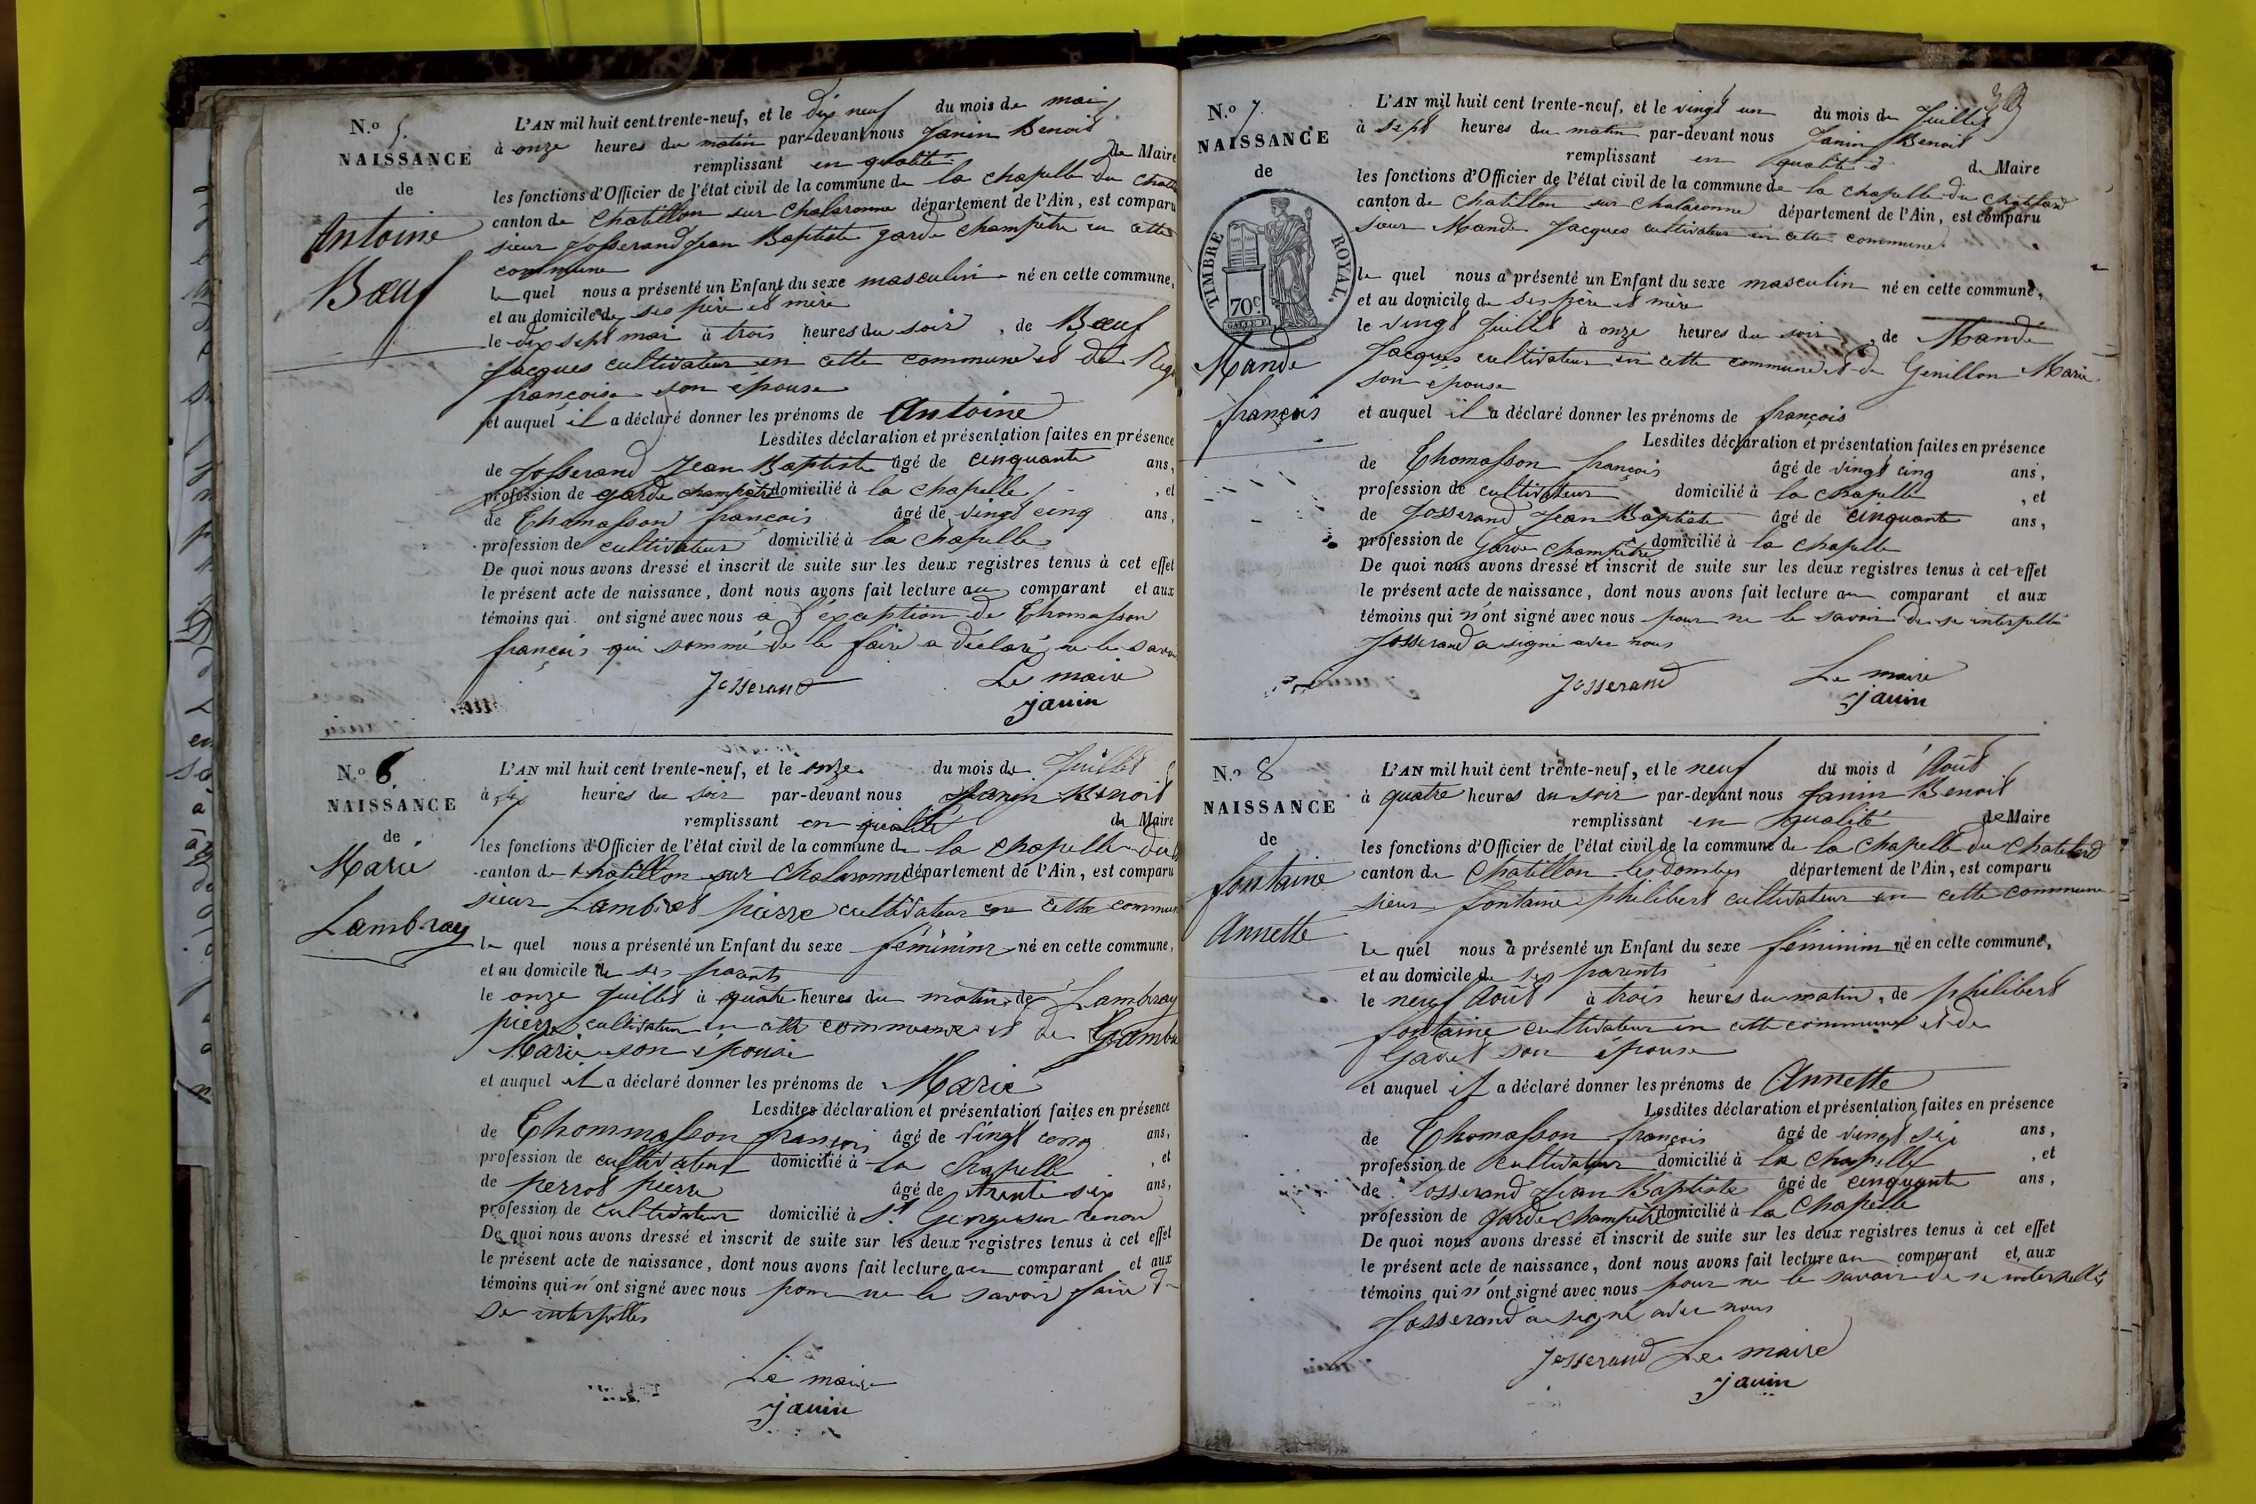 N.o 5.
NAISSANCE
de
Antoine
Bœuf
L'AN mil huit cent trente-neuf, et le dix neuf du mois de mai
à onze heures du matin par-devant nous Janin Benoit
remplissant en qualité de Maire
les fonctions d'Officier de l'état civil de la commune de la chapelle du
canton de Chatillon sur Chalaronne département de l'Ain, est comparu
sieur Josserand Jean Baptiste garde champêtre en cette
commune
le quel nous a présenté un Enfant du sexe masculin né en cette commune,
et au domicile de ses père et mère
le dix sept mai à trois heures du soir, de Bœuf
Jacques cultivateur en cette commune et de
françoise son épouse
et auquel il a déclaré donner les prénoms de Antoine
Lesdites déclaration et présentation faites en présence
de Josserand Jean Baptiste âgé de cinquante ans,
profession de garde champêtre domicilié à la chapelle, et
de Thomasson françois âgé de vingt cinq ans,
profession de cultivateur domicilié à la chapelle
De quoi nous avons dressé et inscrit de suite sur les deux registres tenus à cet effet
le présent acte de naissance, dont nous avons fait lecture au comparant et aux
témoins qui ont signé avec nous a l'éxception de Thomasson
françois qui sommé de le faire a déclaré ne le
Josserand Le maire
janin
N.o 6.
NAISSANCE
de
Marie
Lambray
L'AN mil huit cent trente-neuf, et le onze du mois de Juillet
à six heures du soir par-devant nous Janin Benoit
remplissant en qualité de Maire
les fonctions d'Officier de l'état civil de la commune de la chapelle du
canton de chatillon sur Chalaronne département de l'Ain, est comparu
sieur Lambret pierre cultivateur en cette commune
le quel nous a présenté un Enfant du sexe féminim né en cette commune,
et au domicile de ses parents
le onze Juillet à quatre heures du matin, de Lambray
pierre cultivateur en cette commune et de
Marie son épouse
et auquel il a déclaré donner les prénoms de Marie
Lesdites déclaration et présentation faites en présence
de Thommasson françois âgé de vingt cinq ans,
profession de cultivateur domicilié à la chapelle, et
de perrot pierre âgé de trente six ans,
profession de cultivateur domicilié à St. George sur renon
De quoi nous avons dressé et inscrit de suite sur les deux registres tenus à cet effet
le présent acte de naissance, dont nous avons fait lecture au comparant et aux
témoins qui n'ont signé avec nous pour ne le savoir faire de
se interpellés
Le maire
janin
N.o 7.
NAISSANCE
de
TIMBRE ROYAL.
70c
Mande
françois
L'AN mil huit cent trente-neuf, et le vingt un du mois de Juillet
à sept heures du matin par-devant nous Janin Benoit
remplissant en qualité de Maire
les fonctions d'Officier de l'état civil de la commune de la chapelle du chatelard
canton de Chatillon sur Chalaronne département de l'Ain, est comparu
sieur Mande Jacques cultivateur en cette commune
le quel nous a présenté un Enfant du sexe masculin né en cette commune,
et au domicile de ses père et mère
le vingt Juillet à onze heures du soir, de Mandé
Jacques cultivateur en cette commune et de Genillon Marie
son épouse
et auquel il a déclaré donner les prénoms de françois
Lesdites déclaration et présentation faites en présence
de Thomasson françois âgé de vingt cinq ans,
profession de cultivateur domicilié à la chapelle, et
de Josserand Jean Baptiste âgé de cinquante ans,
profession de Garde champêtre domicilié à la chapelle
De quoi nous avons dressé et inscrit de suite sur les deux registres tenus à cet effet
le présent acte de naissance, dont nous avons fait lecture au comparant et aux
témoins qui n'ont signé avec nous pour ne le savoir de se interpellé
Josserand a signé avec nous
Josserand Le maire
janin
N.o 8
NAISSANCE
de
fontaine
Annette
L'AN mil huit cent trente-neuf, et le neuf du mois d'Août
à quatre heures du soir par-devant nous Janin Benoit
remplissant en qualité de Maire
les fonctions d'Officier de l'état civil de la commune de la chapelle du chatelard
canton de Chatillon les dombes département de l'Ain, est comparu
sieur fontaine philibert cultivateur en cette commune
le quel nous a présenté un Enfant du sexe féminim né en cette commune,
et au domicile de ses parents
le neuf Août à trois heures du matin, de philibert
fontaine cultivateur en cette commune et de
Gadet son épouse
et auquel il a déclaré donner les prénoms de Annette
Lesdites déclaration et présentation faites en présence
de Thomasson françois âgé de vingt six ans,
profession de cultivateur domicilié à la chapelle, et
de Josserand Jean Baptiste âgé de cinquante ans,
profession de garde champêtre domicilié à la Chapelle
De quoi nous avons dressé et inscrit de suite sur les deux registres tenus à cet effet
le présent acte de naissance, dont nous avons fait lecture au comparant et aux
témoins qui n'ont signé avec nous pour ne le savoir de se interpellés
Josserand a signé avec nous
Josserand Le maire
janin